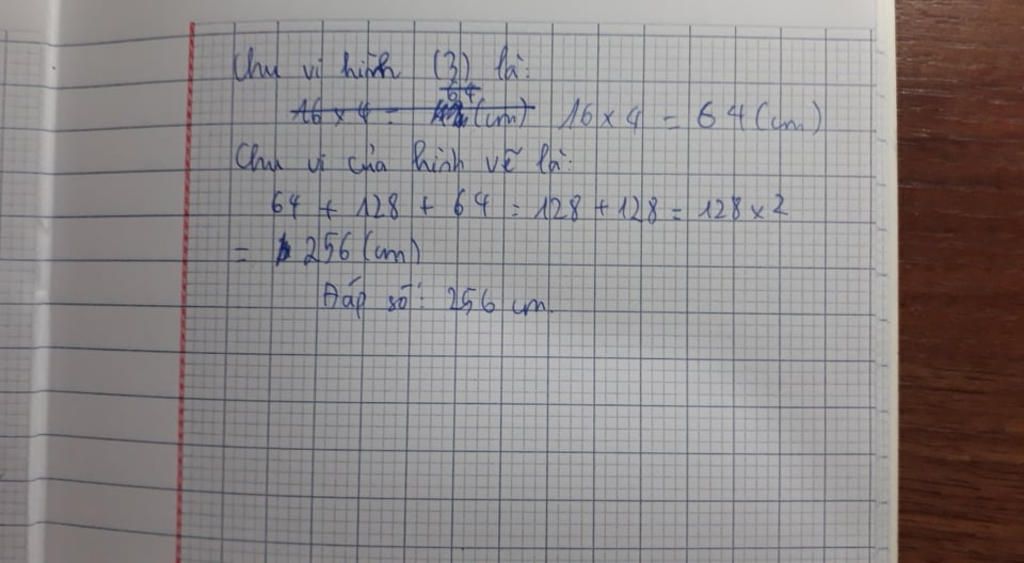 Chu vi hình (3) là:
64
16 x 4 = (cm) 16 x 4 = 64 (cm)
Chu vi của hình vẽ là:
64 + 128 + 64 = 128 + 128 = 128 x 2
= 256 (cm)
Đáp số: 256 cm.